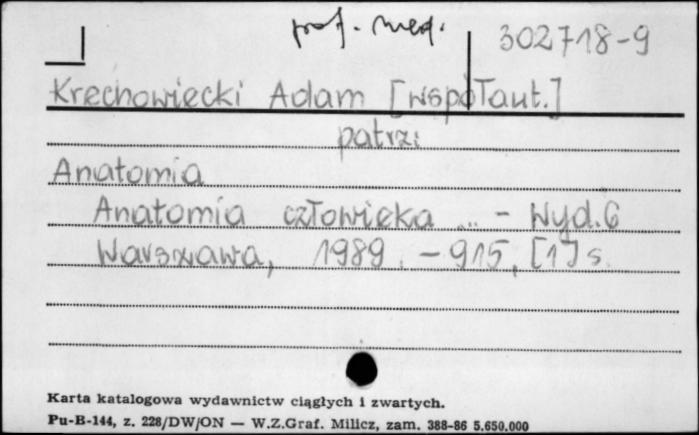 prof. med.
302718-9
Krechowiecki Adam [współaut.]
patrz:
Anatomia
Anatomia człowieka ... - Wyd. 6
Warszawa, 1989. - 915, [1] s.
Karta katalogowa wydawnictw ciągłych i zwartych.
Pu-B-144, z. 228/DW/ON — W.Z.Graf. Milicz, zam. 388-86 5.650.000